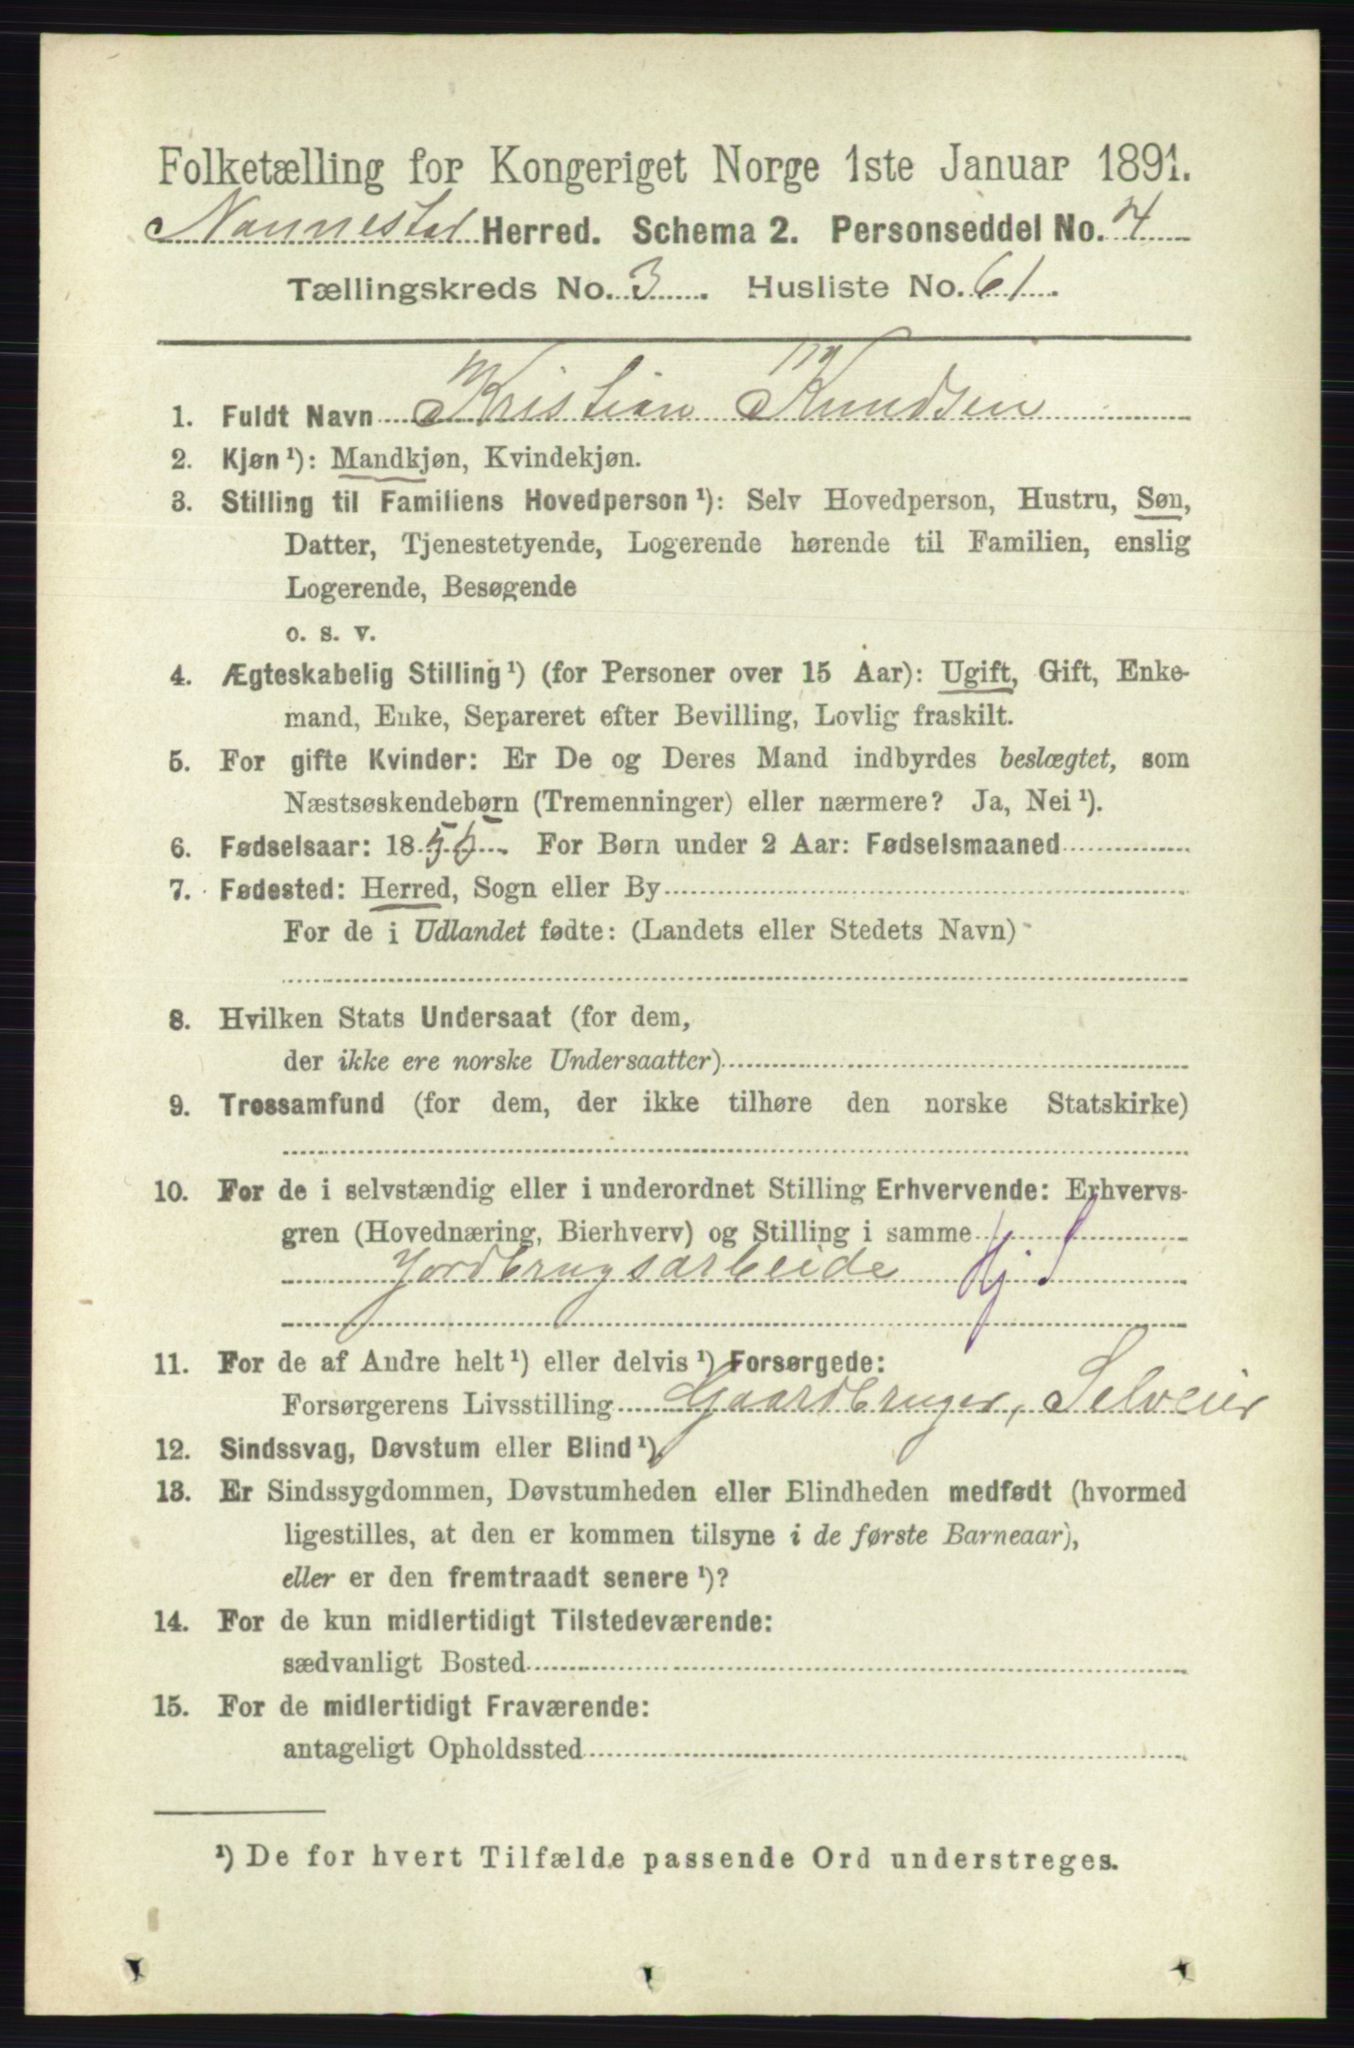 Folketælling for Kongeriget Norge 1ste Januar 1891.
Nannestad Herred. Schema 2. Personseddel No. 4
Tællingskreds No. 3. Husliste No. 61.
1. Fuldt Navn Kristian Knudsen
2. Kjøn¹): Mandkjøn, Kvindekjøn.
3. Stilling til Familiens Hovedperson¹): Selv Hovedperson, Hustru, Søn,
Datter, Tjenestetyende, Logerende hørende til Familien, enslig
Logerende, Besøgende
o. s. v.
4. Ægteskabelig Stilling¹) (for Personer over 15 Aar): Ugift, Gift, Enke-
mand, Enke, Separeret efter Bevilling, Lovlig fraskilt.
5. For gifte Kvinder: Er De og Deres Mand indbyrdes beslægtet, som
Næstsøskendebørn (Tremenninger) eller nærmere? Ja, Nei¹).
6. Fødselsaar: 18 For Børn under 2 Aar: Fødselsmaaned
7. Fødested: Herred, Sogn eller By
For de i Udlandet fødte: (Landets eller Stedets Navn)
8. Hvilken Stats Undersaat (for dem,
der ikke ere norske Undersaatter)
9. Trossamfund (for dem, der ikke tilhøre den norske Statskirke)
10. For de i selvstændig eller i underordnet Stilling Erhvervende: Erhvervs-
gren (Hovednæring, Bierhverv) og Stilling i samme
Jordbrugsarbeide Hj S
11. For de af Andre helt¹) eller delvis¹) Forsørgede:
Forsørgerens Livsstilling Gaardbruger, Selveier
12. Sindssvag, Døvstum eller Blind¹).
13. Er Sindssygdommen, Døvstumheden eller Blindheden medfødt (hvormed
ligestilles, at den er kommen tilsyne i de første Barneaar),
eller er den fremtraadt senere¹)?
14. For de kun midlertidigt Tilstedeværende:
sædvanligt Bosted
15. For de midlertidigt Fraværende:
antageligt Opholdssted
¹) De for hvert Tilfælde passende Ord understreges.